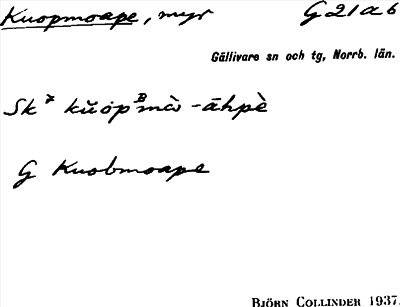 Kuopmoape, myr G 21 a b
Gällivare sn och tg, Norrb. län.
Sk⁷ kŭȯpᴮmȧ̀ -āhpè
G Kuobmoape
BJÖRN COLLINDER 1937.